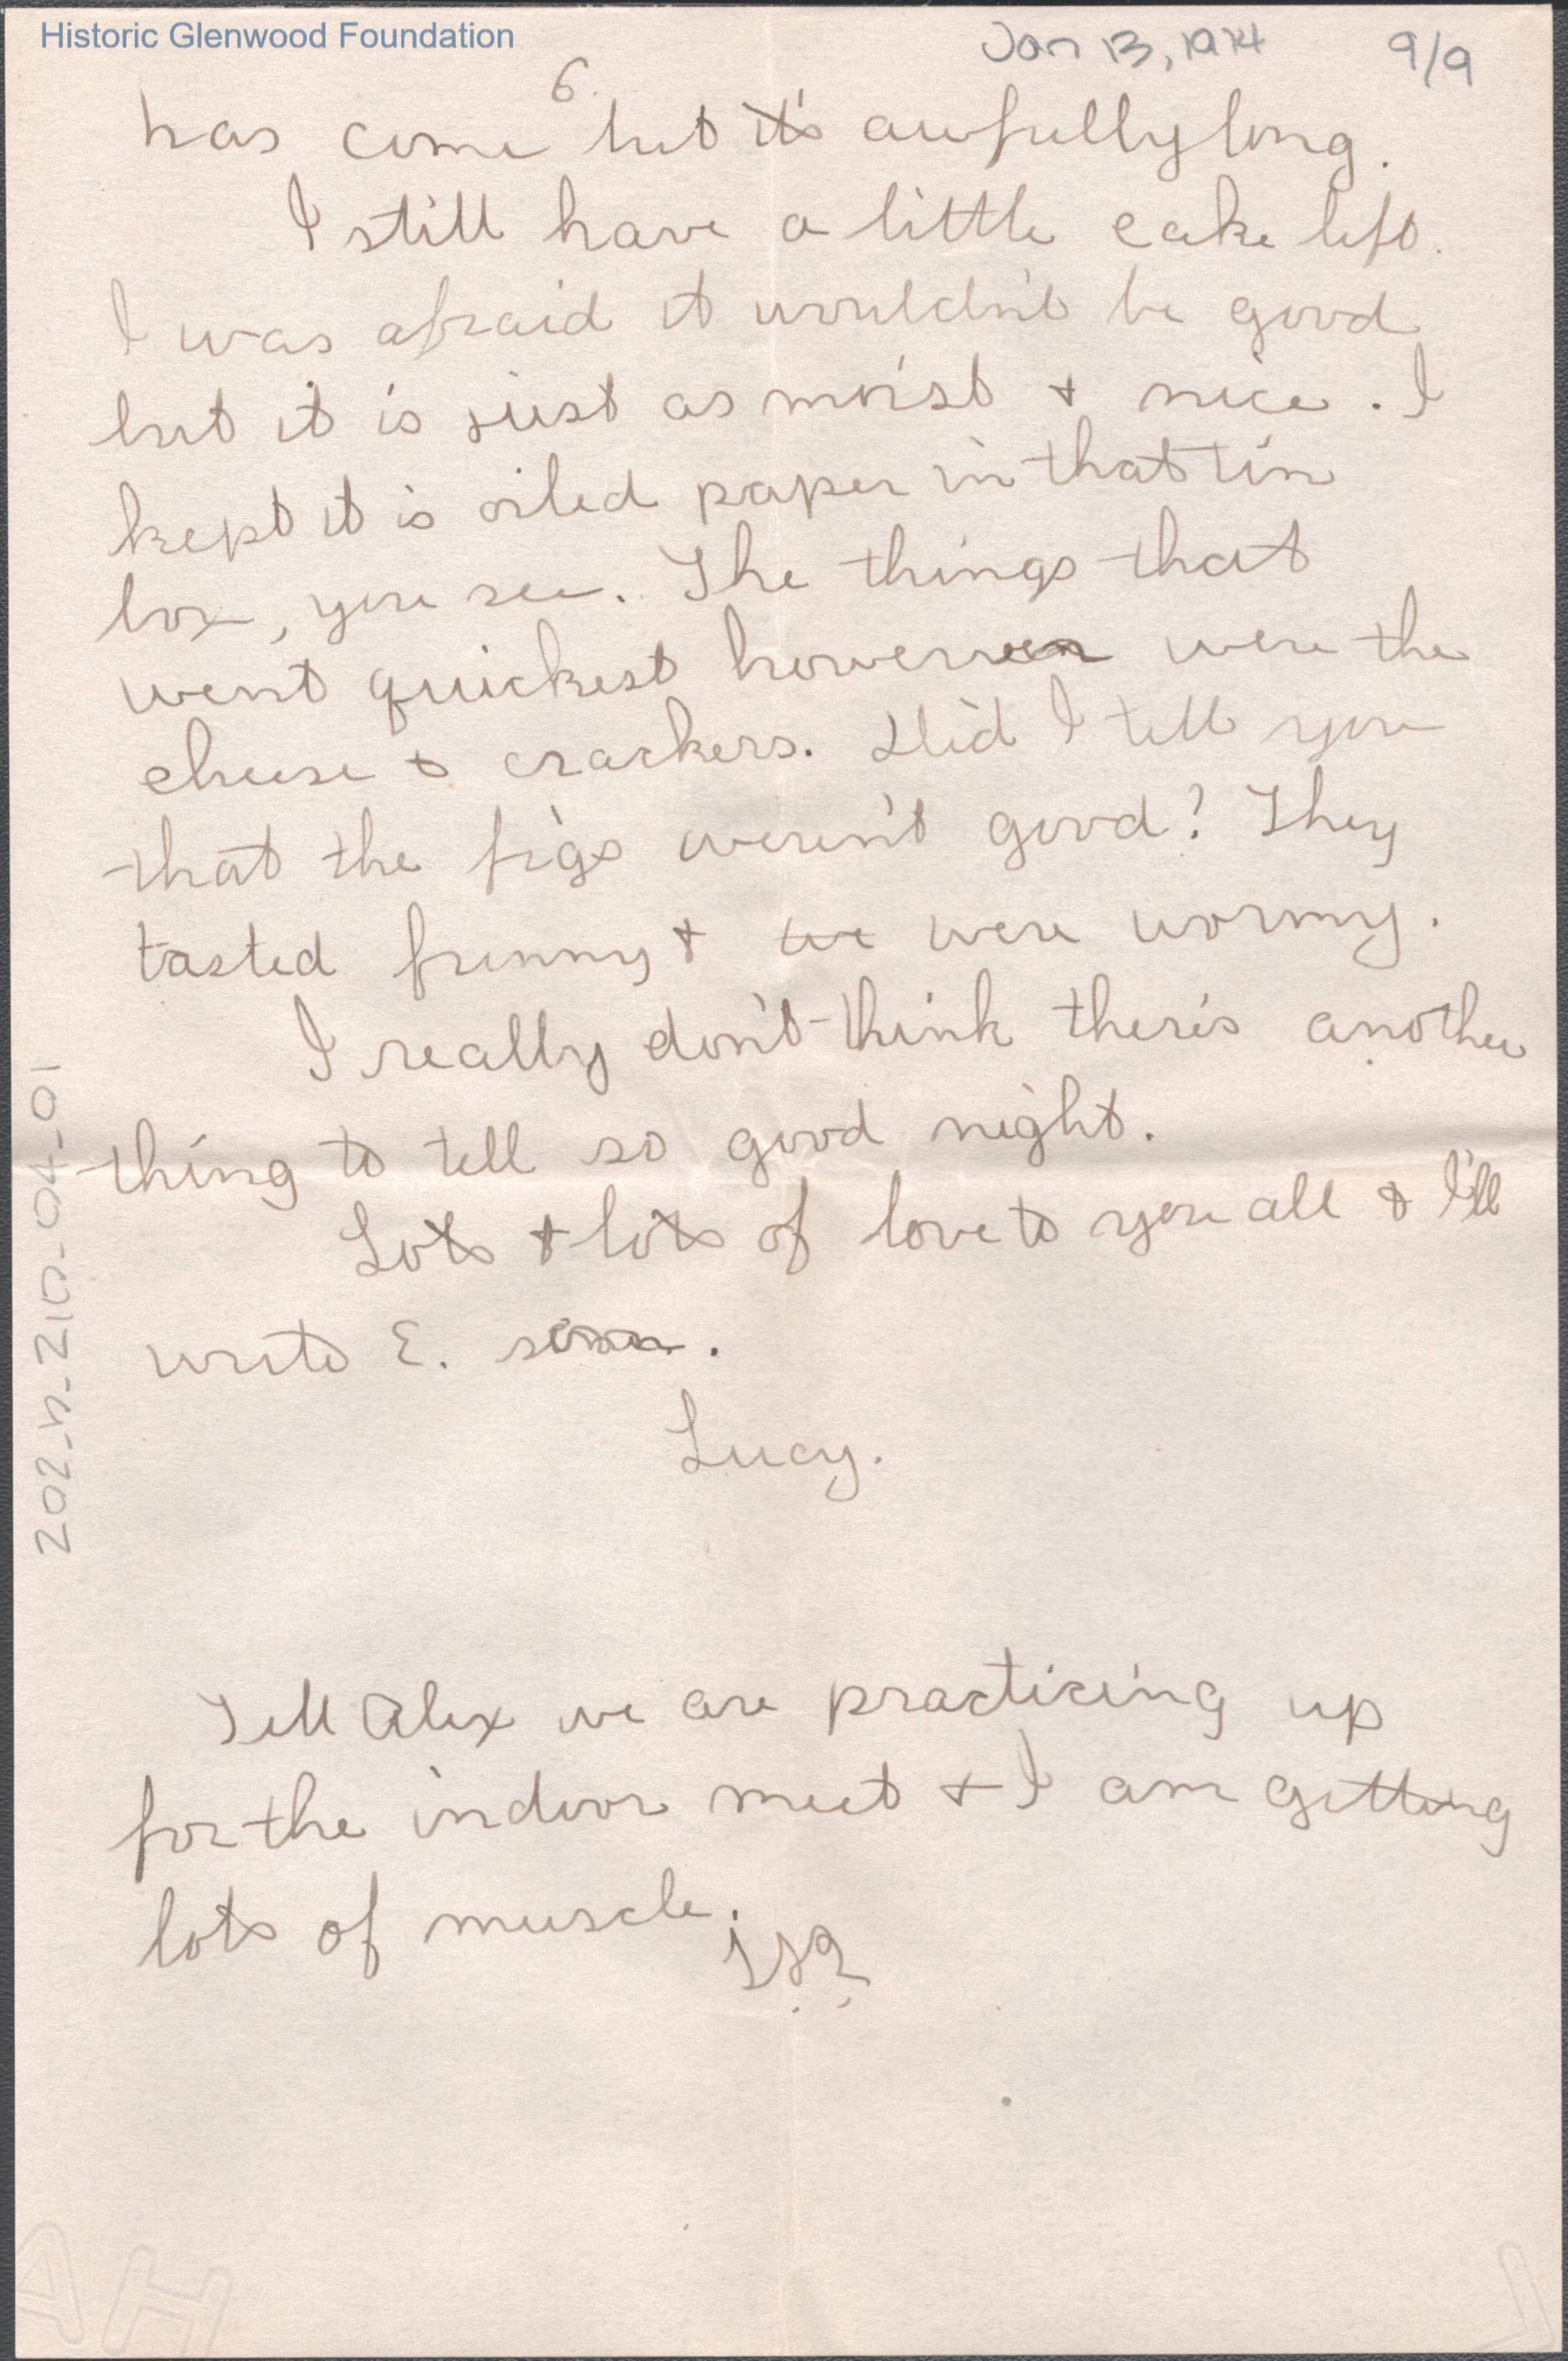 Historic Glenwood Foundation
Jan 13, 1914 9/9
6.
has come but it's awfully long.
I still have a little cake left.
I was afraid it wouldn't be good
but it is just as moist & nice. I
kept it is oiled paper in that tin
box, you see. The things that
went quickest however were the
cheese & crackers. Did I tell you
that the figs weren't good? They
tasted funny & we were wormy.
I really don't think there's another
thing to tell so good night.
Lots & lots of love to you all & I'll
write E. soon.
Lucy.
Tell Alex we are practicing up
for the indoor meet & I am getting
lots of muscle.
202-n-210-04-01